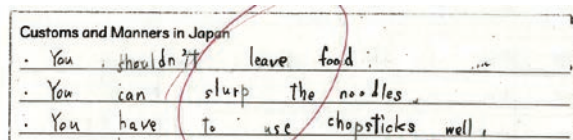 Customs and Manners in Japan
· You shouldn't leave food.
· You can slurp the noodles.
· You have to use chopsticks well.